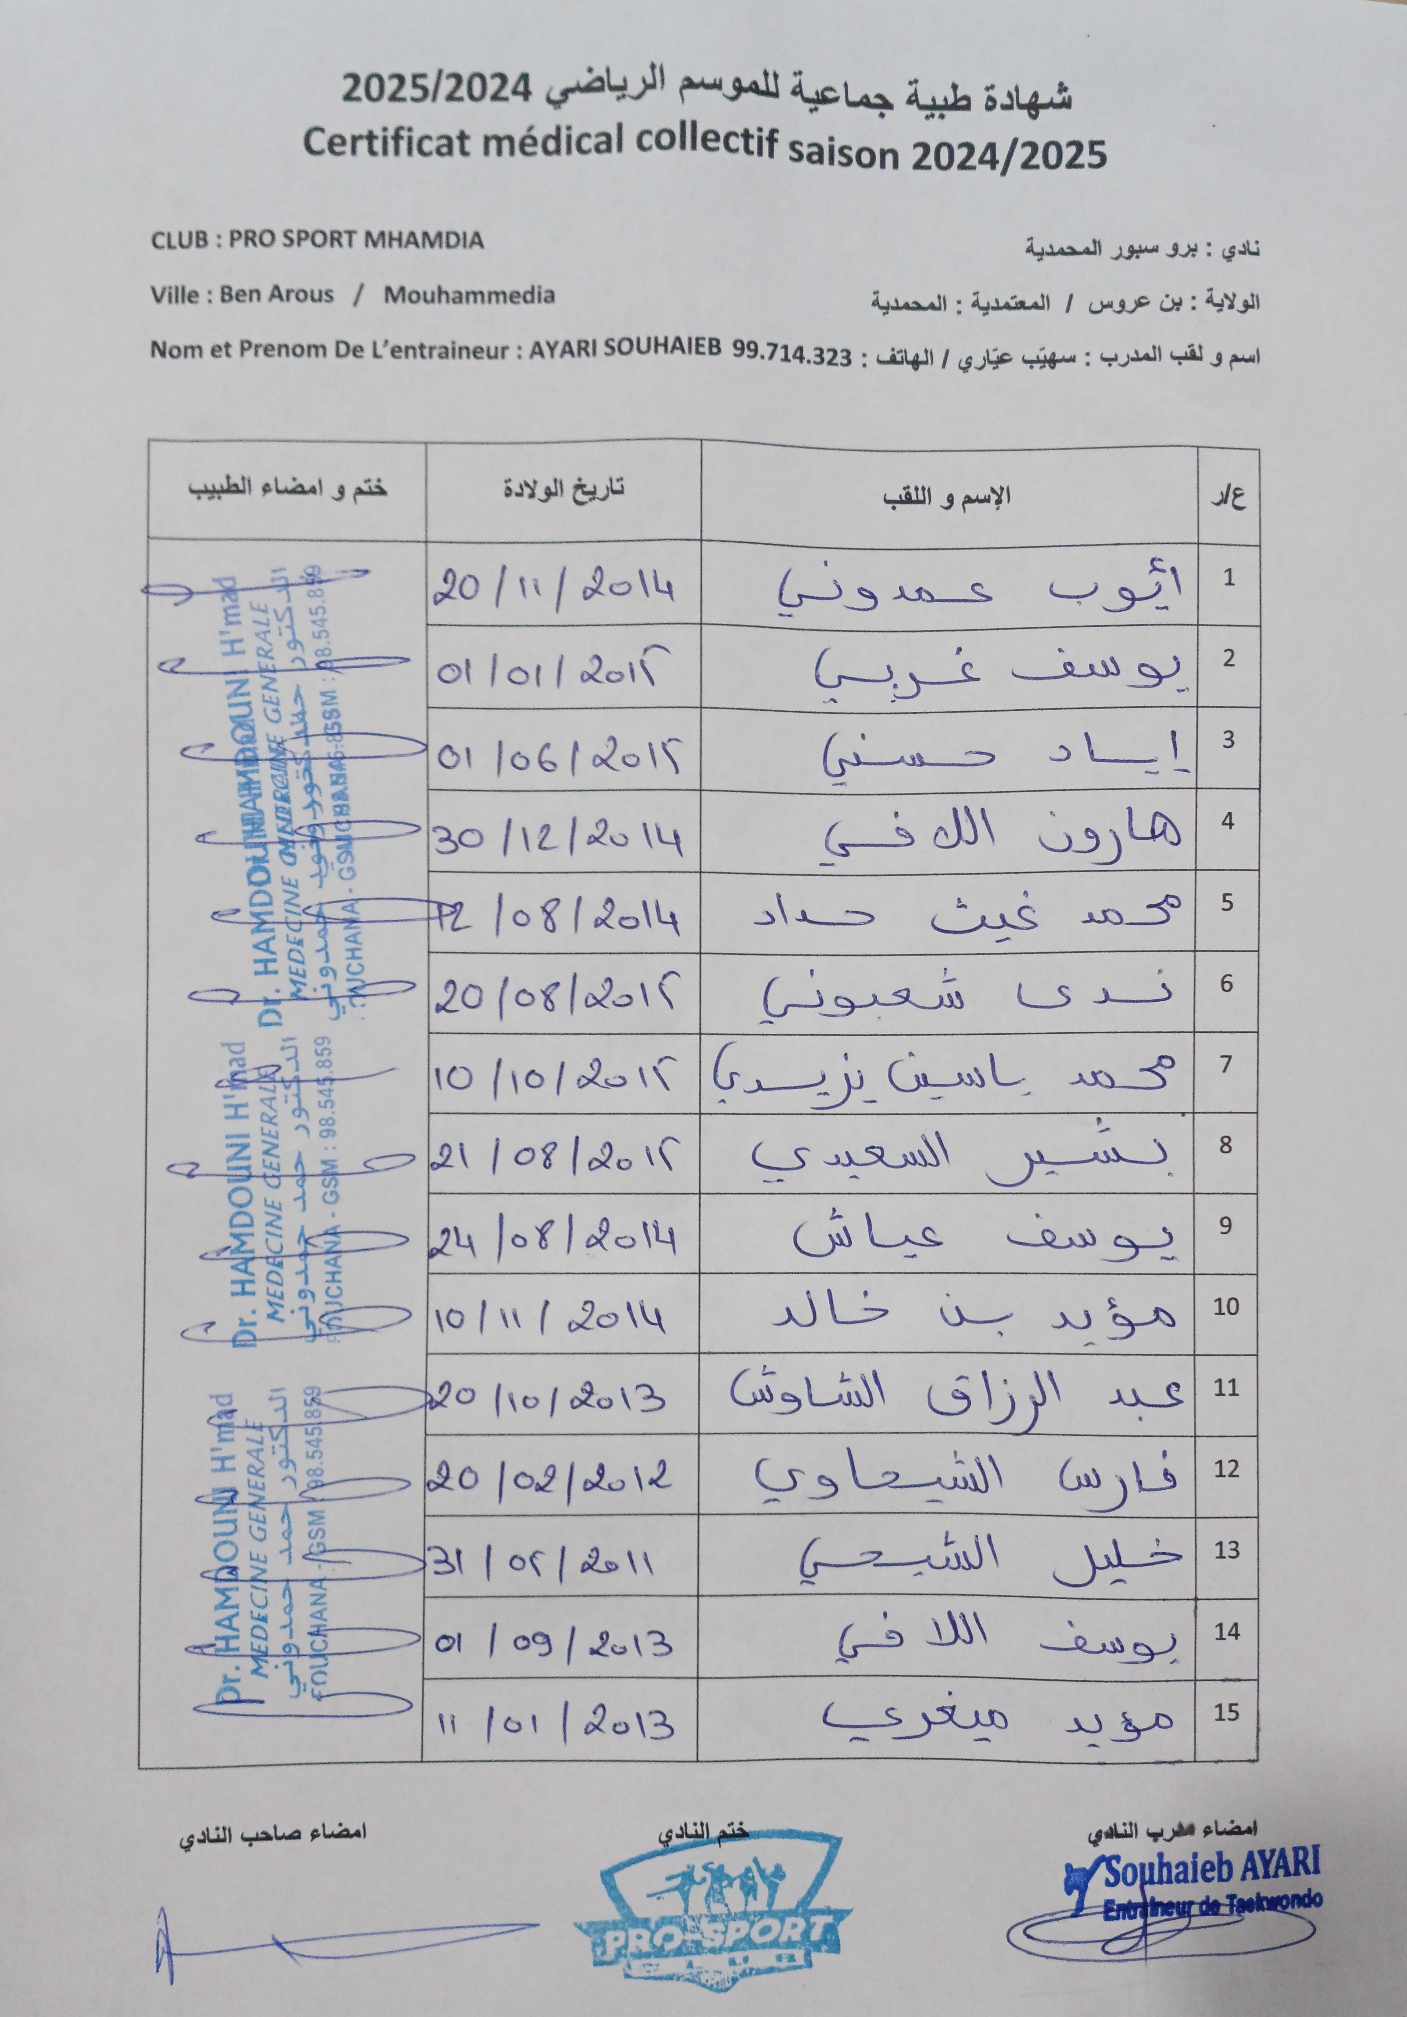 شهادة طبية جماعية للموسم الرياضي 2025/2024
Certificat médical collectif saison 2024/2025
CLUB : PRO SPORT MHAMDIA
نادي : برو سبور المحمدية
Ville : Ben Arous / Mouhammedia
الولاية : بن عروس / المعتمدية : المحمدية
Nom et Prenom De L'entraineur : AYARI SOUHAIEB
اسم و لقب المدرب : سهيّب عيّاري / الهاتف : 99.714.323
ع/ر الإسم و اللقب تاريخ الولادة ختم و امضاء الطبيب
1 أيّوب عمدوني 20/11/2014
2 يوسف غربي 01/01/201٢
3 إياد حسني 01/06/201٢
4 هارون اللافي 30/12/2014
5 محمد غيث حداد 12/08/2014
6 ندى شعبوني 20/08/201٢
7 محمد ياسين يزيدي 10/10/201٢
8 بشير السعيدي 21/08/201٢
9 يوسف عياش 24/08/2014
10 مؤيد بن خالد 10/11/2014
11 عبد الرزاق الشاوش 20/10/2013
12 فارس الشيحاوي 20/02/2012
13 خليل الشيحي 31/0٢/2011
14 يوسف اللافي 01/09/2013
15 مؤيد ميغري 11/01/2013
Dr. HAMDOUNI H'mad
MEDECINE GENERALE
الدكتور حمد حمدوني
FOUCHANA - GSM : 98.545.859
Dr. HAMDOUNI H'mad
MEDECINE GENERALE
الدكتور حمد حمدوني
FOUCHANA - GSM : 98.545.859
Dr. HAMDOUNI H'mad
MEDECINE GENERALE
الدكتور حمد حمدوني
FOUCHANA - GSM : 98.545.859
امضاء مدرب النادي
ختم النادي
امضاء صاحب النادي
Souhaieb AYARI
Entraineur de Taekwondo
PRO-SPORT